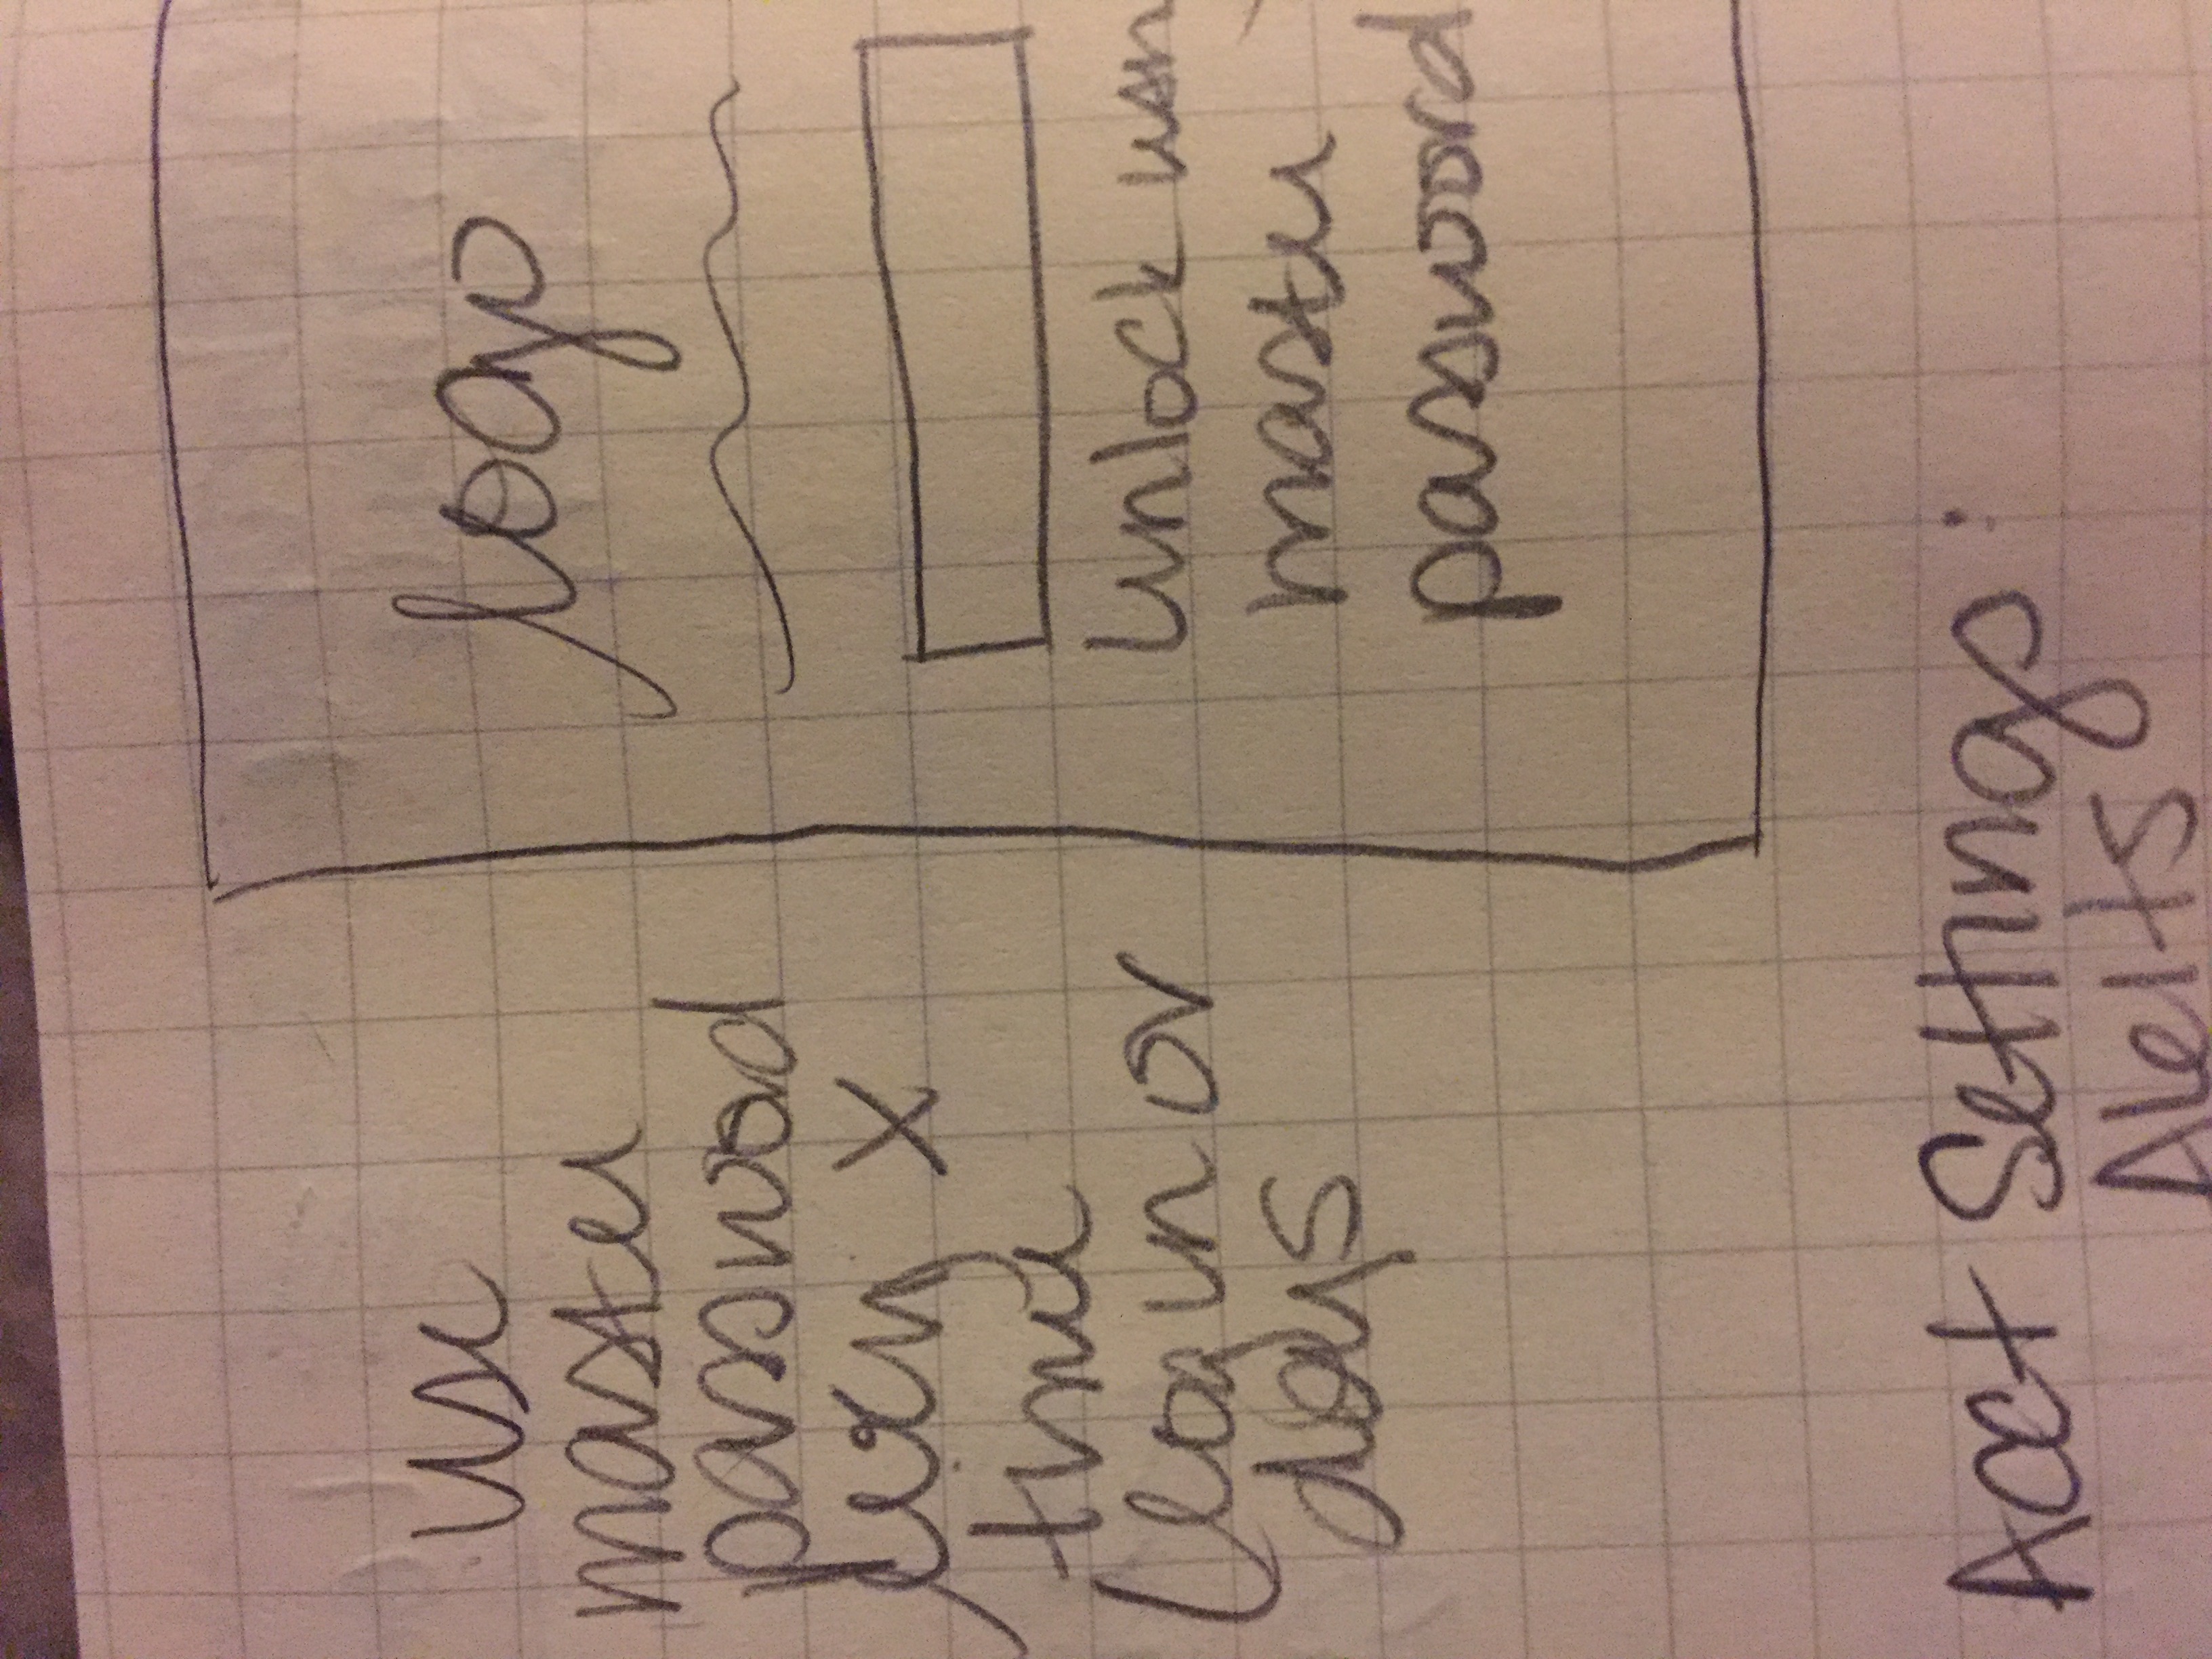 use
master
password
every x
time
(login or
days
logo
unlock usin
master
password
Acct Settings:
Alerts